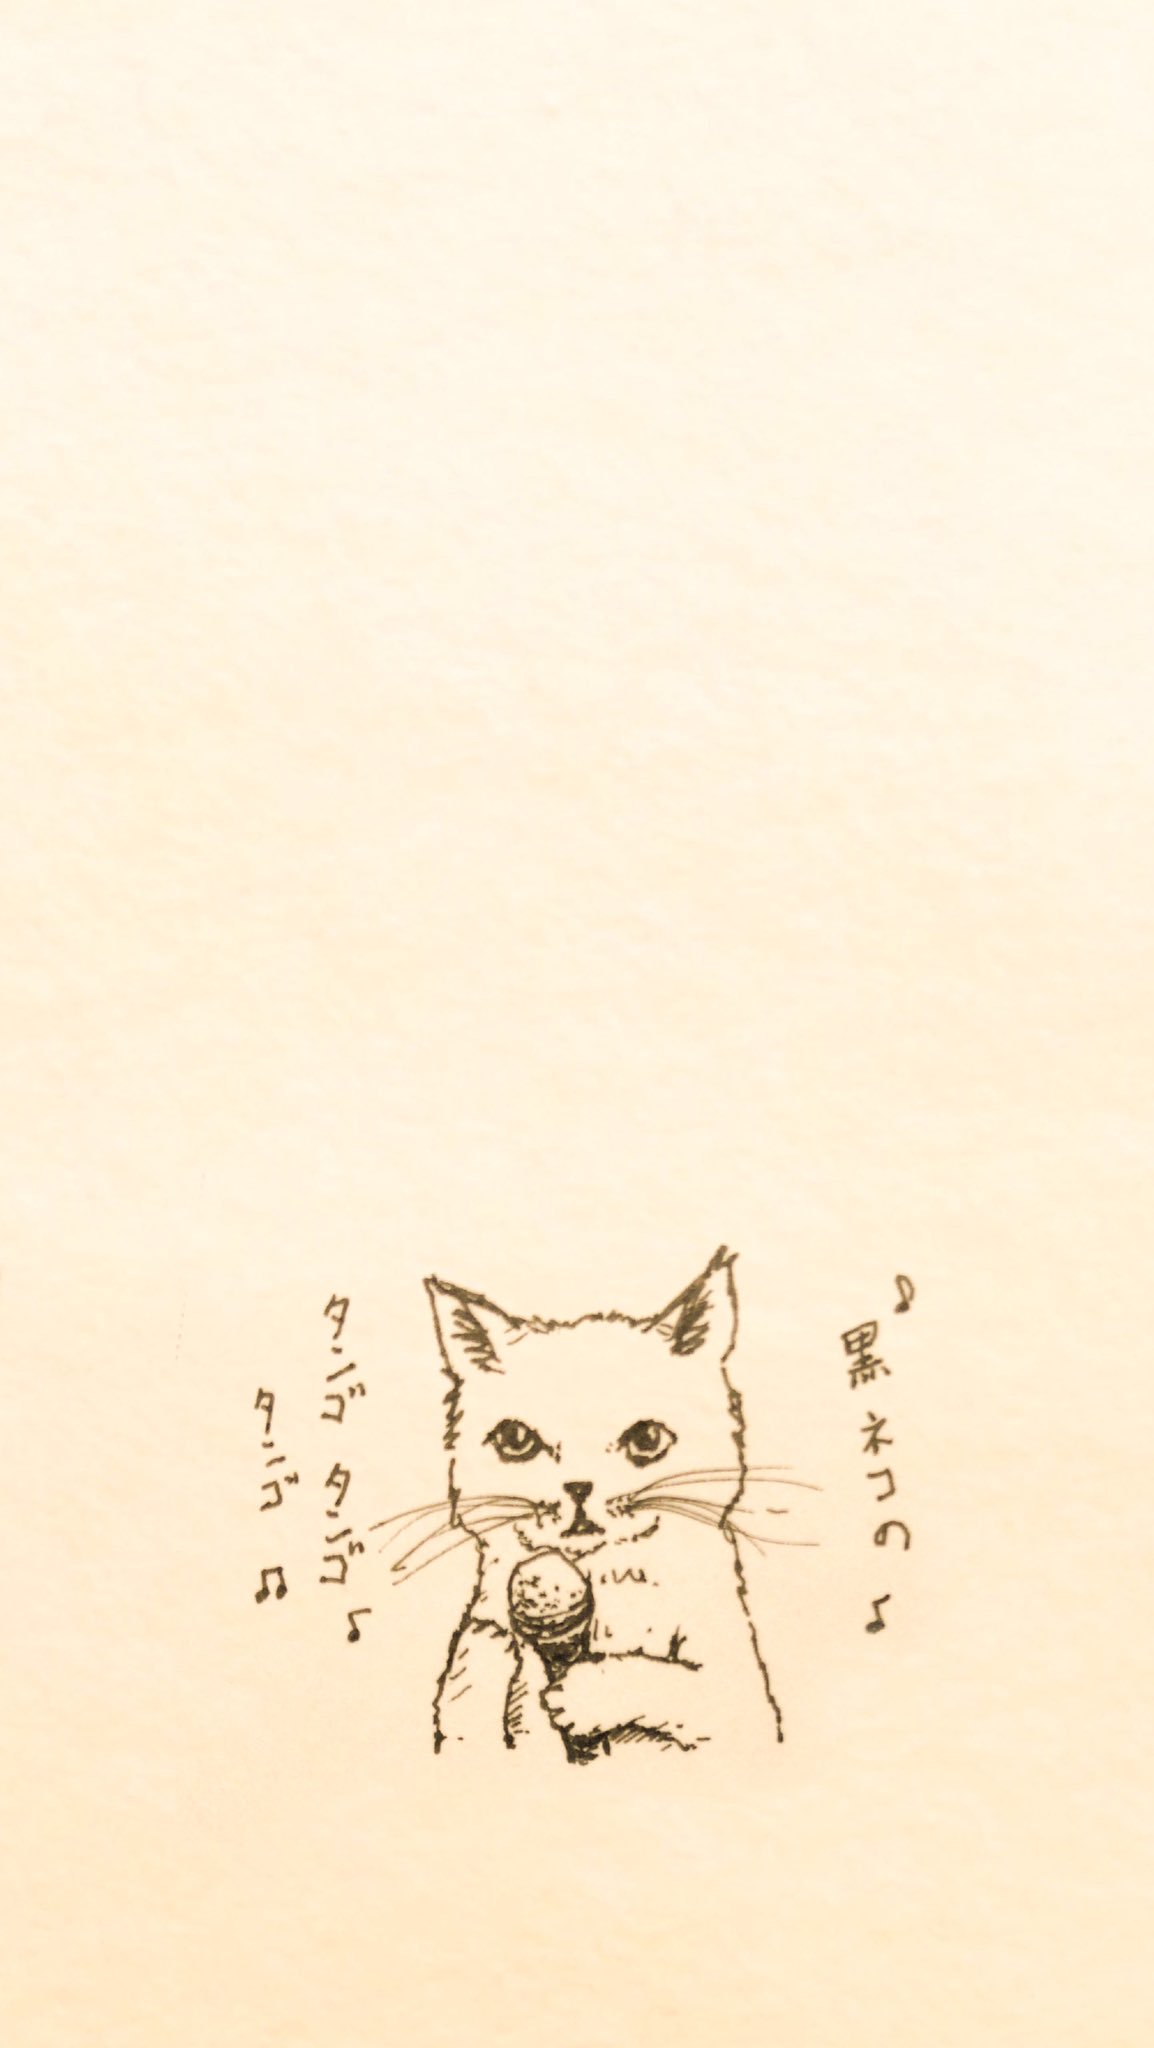 ♪
黒ネコの♪
タンゴ タンゴ♪
タンゴ♫